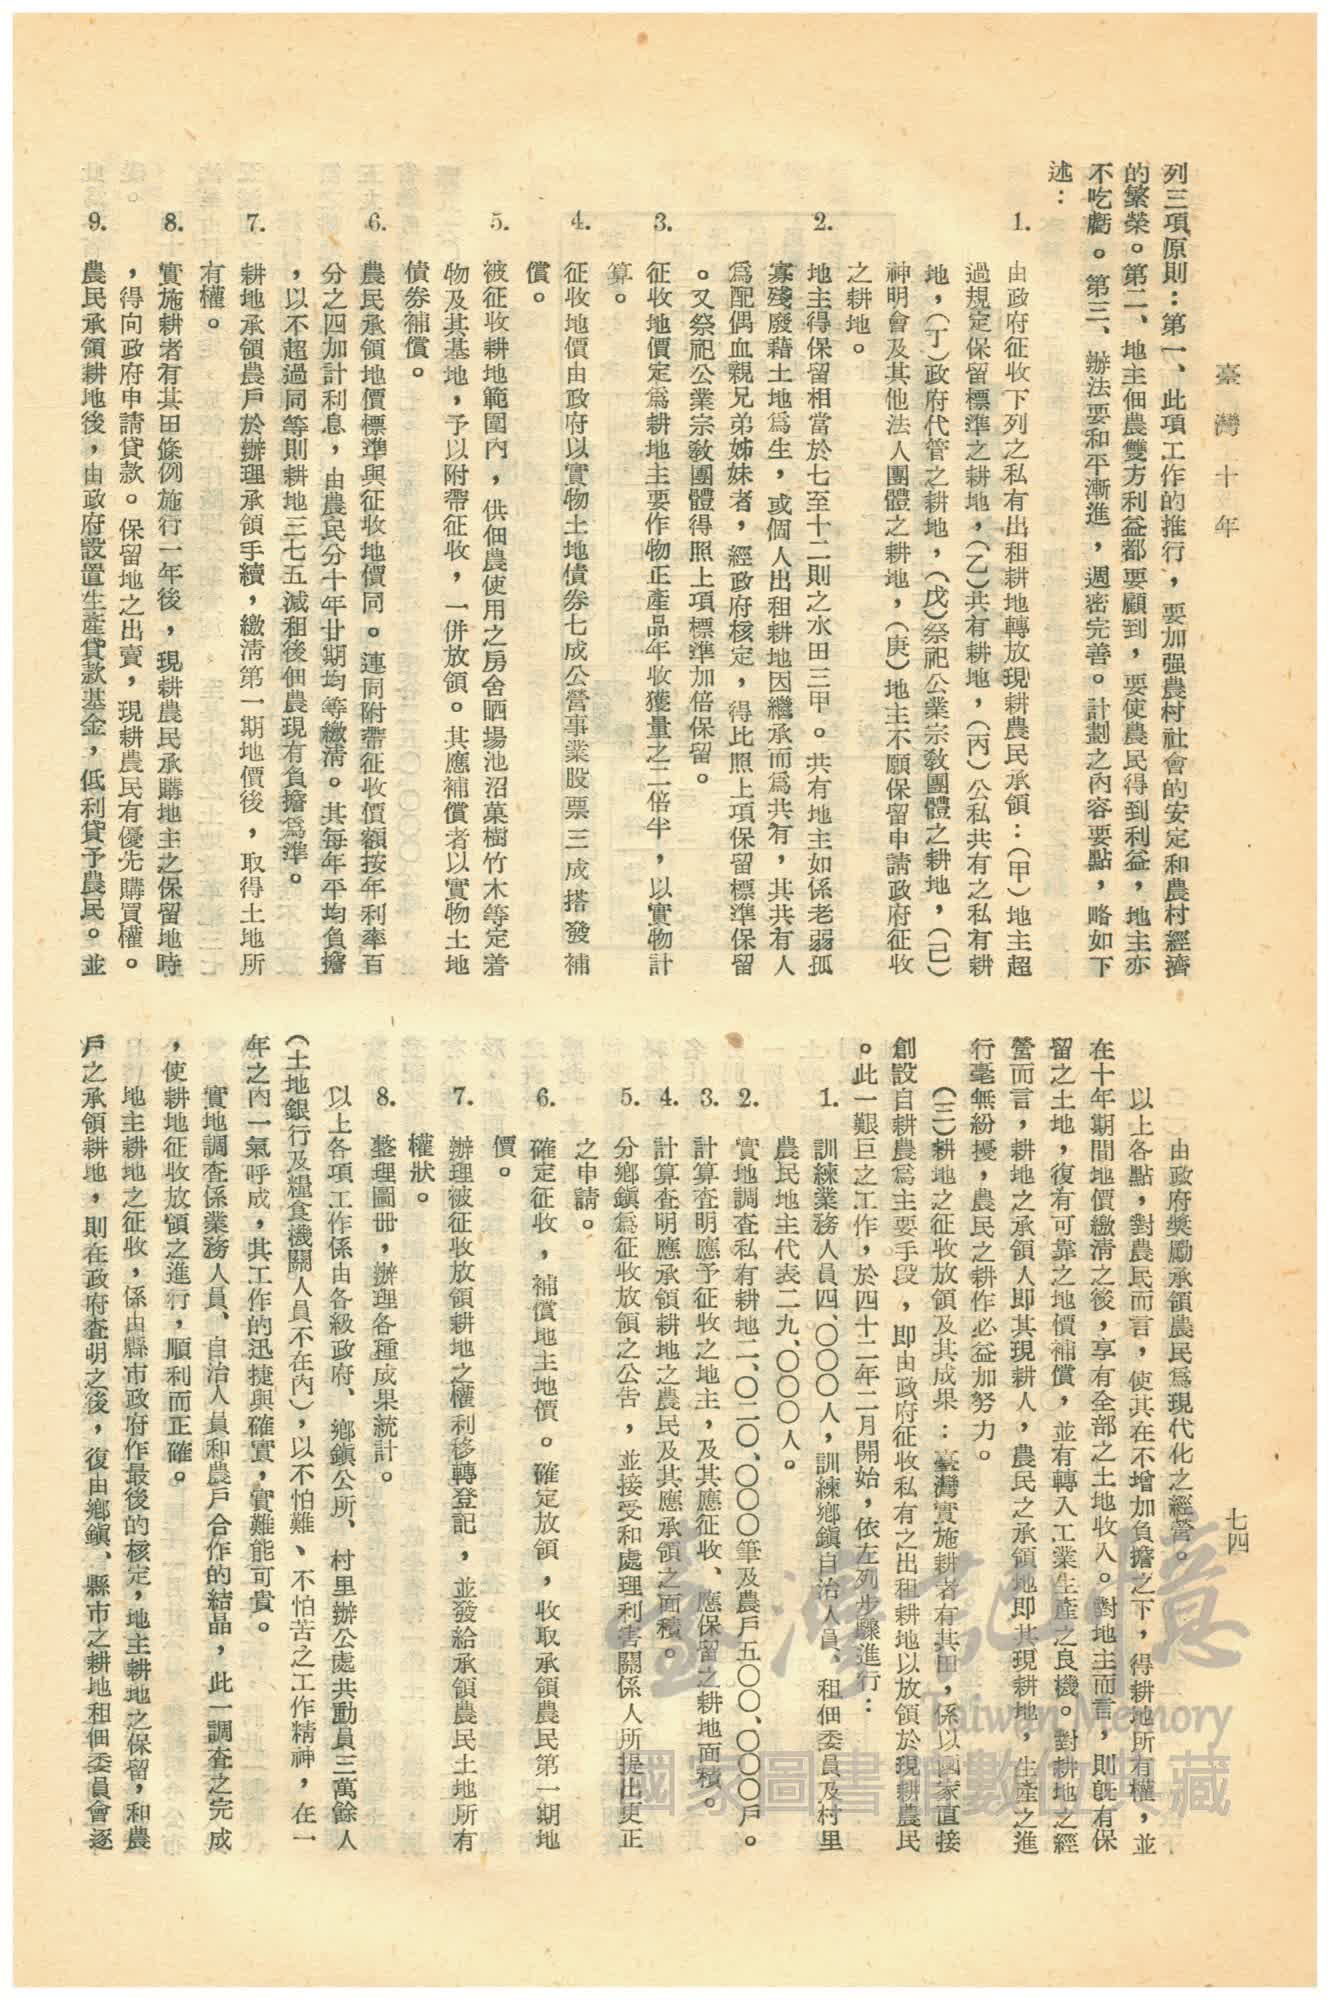 臺灣十年
七四
列三項原則：第一、此項工作的推行，要加强農村社會的安定和農村經濟
的繁榮。第二、地主佃農雙方利益都要顧到，要使農民得到利益，地主亦
不吃虧。第三、辦法要和平漸進，週密完善。計劃之內容要點，略如下
述：
1. 由政府征收下列之私有出租耕地轉放現耕農民承領：（甲）地主超
過規定保留標準之耕地，（乙）共有耕地，（丙）公私共有之私有耕
地，（丁）政府代管之耕地，（戊）祭祀公業宗敎團體之耕地，（己）
神明會及其他法人團體之耕地，（庚）地主不願保留申請政府征收
之耕地。
2. 地主得保留相當於七至十二則之水田三甲。共有地主如係老弱孤
寡殘廢藉土地爲生，或個人出租耕地因繼承而爲共有，其共有人
爲配偶血親兄弟姊妹者，經政府核定，得比照上項保留標準保留
。又祭祀公業宗敎團體得照上項標準加倍保留。
3. 征收地價定爲耕地主要作物正產品年收獲量之二倍半，以實物計
算。
4. 征收地價由政府以實物土地債券七成公營事業股票三成搭發補
償。
5. 被征收耕地範圍內，供佃農使用之房舍晒場池沼菓樹竹木等定着
物及其基地，予以附帶征收，一併放領。其應補償者以實物土地
債券補償。
6. 農民承領地價標準與征收地價同。連同附帶征收價額按年利率百
分之四加計利息，由農民分十年廿期均等繳清。其每年平均負擔
，以不超過同等則耕地三七五減租後佃農現有負擔爲準。
7. 耕地承領農戶於辦理承領手續，繳清第一期地價後，取得土地所
有權。
8. 實施耕者有其田條例施行一年後，現耕農民承購地主之保留地時
，得向政府申請貸款。保留地之出賣，現耕農民有優先購買權。
9. 農民承領耕地後，由政府設置生產貸款基金，低利貸予農民。並
由政府奬勵承領農民爲現代化之經營。
以上各點，對農民而言，使其在不增加負擔之下，得耕地所有權，並
在十年期間地價繳清之後，享有全部之土地收入。對地主而言，則旣有保
留之土地，復有可靠之地價補償，並有轉入工業生產之良機。對耕地之經
營而言，耕地之承領人即其現耕人，農民之承領地即其現耕地，生產之進
行毫無紛擾，農民之耕作必益加努力。
（三）耕地之征收放領及其成果：臺灣實施耕者有其田，係以國家直接
創設自耕農爲主要手段，即由政府征收私有之出租耕地以放領於現耕農民
。此一艱巨之工作，於四十二年二月開始，依左列步驟進行：
1. 訓練業務人員四、〇〇〇人，訓練鄉鎭自治人員、租佃委員及村里
農民地主代表二九、〇〇〇人。
2. 實地調査私有耕地二、〇二〇、〇〇〇筆及農戶五〇〇、〇〇〇戶。
3. 計算査明應予征收之地主，及其應征收、應保留之耕地面積。
4. 計算査明應承領耕地之農民及其應承領之面積。
5. 分鄉鎭爲征收放領之公吿，並接受和處理利害關係人所提出更正
之申請。
6. 確定征收，補償地主地價。確定放領，收取承領農民第一期地
價。
7. 辦理被征收放領耕地之權利移轉登記，並發給承領農民土地所有
權狀。
8. 整理圖册，辦理各種成果統計。
以上各項工作係由各級政府、鄉鎭公所、村里辦公處共動員三萬餘人
（土地銀行及糧食機關人員不在內），以不怕難、不怕苦之工作精神，在一
年之內一氣呵成，其工作的迅捷與確實，實難能可貴。
實地調査係業務人員、自治人員和農戶合作的結晶，此一調査之完成
，使耕地征收放領之進行，順利而正確。
地主耕地之征收，係由縣市政府作最後的核定，地主耕地之保留，和農
戶之承領耕地，則在政府査明之後，復由鄉鎭、縣市之耕地租佃委員會逐
臺灣記憶
Taiwan Memory
國家圖書館數位典藏